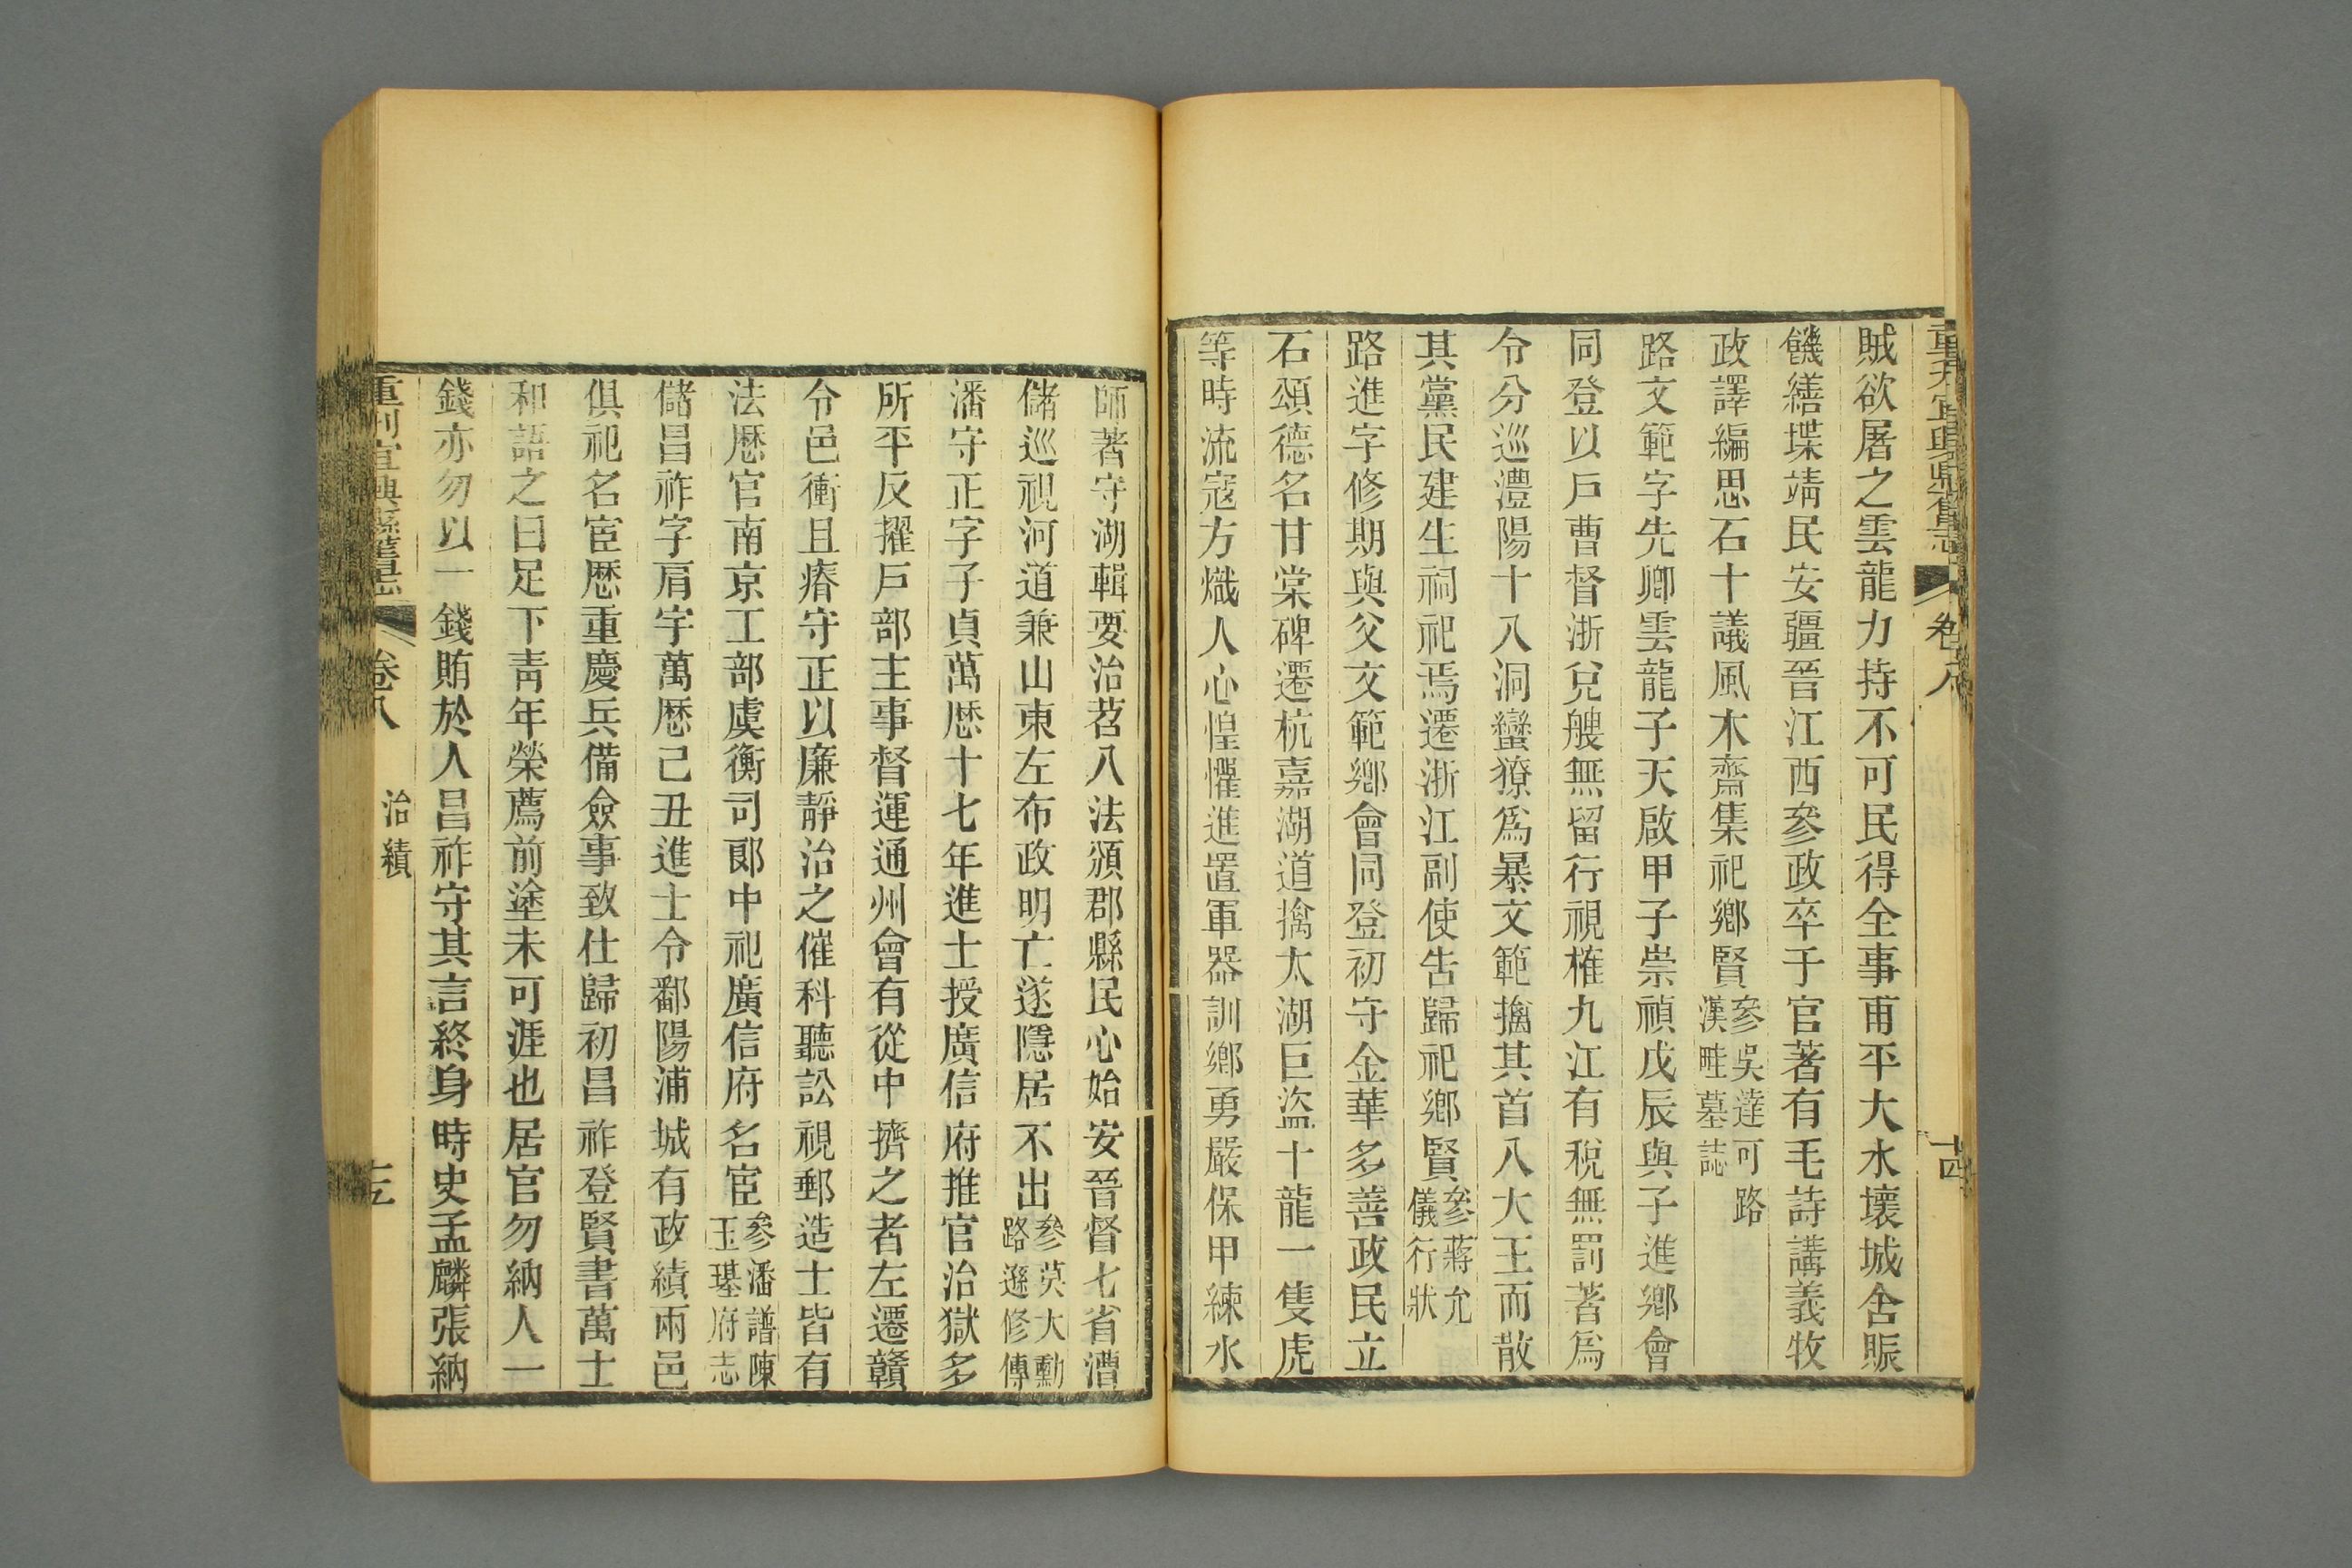 重刊宜興縣舊志 卷八 十四
賊欲屠之雲龍力持不可民得全事甫平大水壞城舍賑
饑繕堞靖民安疆晉江西參政卒于官著有毛詩講義牧
政譯編思石十議風木齋集祀鄉賢參吳達可路漢畦墓誌
路文範字先卿雲龍子天啟甲子崇禎戊辰與子進鄉會
同登以戶曹督浙兌艘無留行視榷九江有稅無罰著為
令分巡澧陽十八洞蠻獠為暴文範擒其首八大王而散
其黨民建生祠祀焉遷浙江副使告歸祀鄉賢參蔣允儀行狀
路進字修期與父文範鄉會同登初守金華多善政民立
石頌德名甘棠碑遷杭嘉湖道擒太湖巨盜十龍一隻虎
等時流寇方熾人心惶懼進置軍器訓鄉勇嚴保甲練水
師著守湖輯要治苕八法頒郡縣民心始安晉督七省漕
儲巡視河道兼山東左布政明亡遂隱居不出參莫大勳路遜修傳
潘守正字子貞萬歷十七年進士授廣信府推官治獄多
所平反擢戶部主事督運通州會有從中擠之者左遷贛
令邑衝且瘠守正以廉靜治之催科聽訟視郵造士皆有
法歷官南京工部虞衡司郎中祀廣信府名宦參潘譜陳玉璂府志
儲昌祚字肩宇萬歷己丑進士令鄱陽浦城有政績兩邑
俱祀名宦歷重慶兵備僉事致仕歸初昌祚登賢書萬士
和語之曰足下青年榮薦前塗未可涯也居官勿納人一
錢亦勿以一錢賄於人昌祚守其言終身時史孟麟張納
重刊宜興縣舊志 卷八 治績 十五